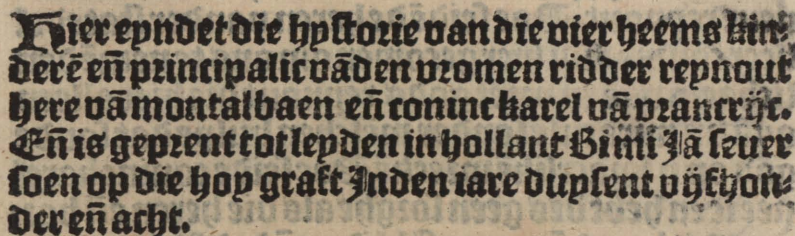 Hier eyndet die hystorie van die vier heems kin⸗
derē en̄ principalic vā den vromen ridder reynout
here vā montalbaen en̄ coninc karel vā vrancrijc.
En̄ is geprent tot leyden in hollant Bi mi Jā seuer
soen op die hoy graft Jnden iare duysent vijfhon⸗
der en̄ acht.